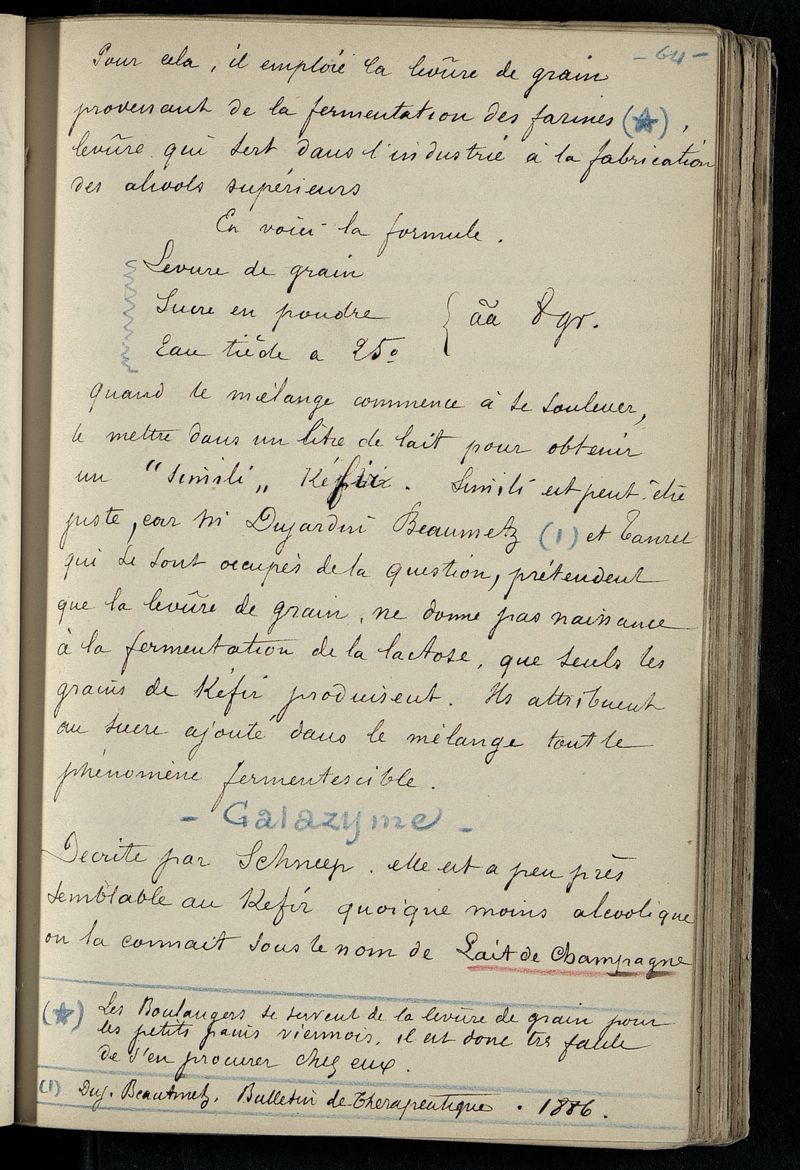 - 64 -
Pour cela, il emploie la levûre de grain
provenant de la fermentation des farines (★),
levûre qui sert dans l'industrie à la fabrication
des alcools supérieurs
En voici la formule.
Levure de grain
Sucre en poudre } āā 8 gr.
Eau tiède a 25°
quand le mélange commence à se soulever,
le mettre dans un litre de lait pour obtenir
un "simili" Kéfir. Simili est peut-être
juste, car M Dujardin Beaumetz (1) et Tanret
qui se sont occupés de la question, prétendent
que la levûre de grain, ne donne pas naissance
à la fermentation de la lactose, que seuls les
grains de Kéfir produisent. Ils attribuent
au sucre ajouté dans le mélange tout le
phénomène fermentescible.
- Galazyme -
Decrite par Schneep. elle est a peu près
semblable au Kefir quoique moins alcoolique
on la connait sous le nom de Lait de Champagne
(★) Les Boulangers se servent de la levûre de grain pour
les petits pains viennois, il est donc très facile
de s'en procurer chez eux.
(1) Duj. Beaumetz. Bulletin de Therapeutique. 1886.